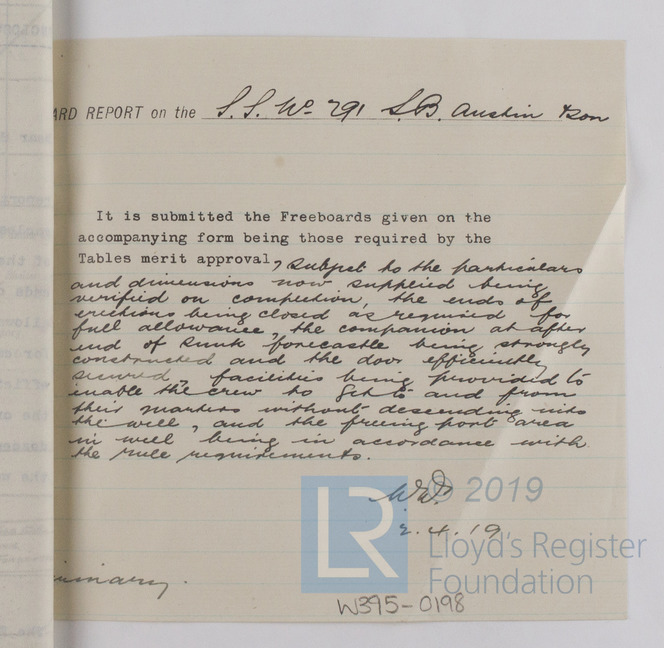 ARD REPORT on the S.S. No 291 S.B. Austin & Son
It is submitted the Freeboards given on the
accompanying form being those required by the
Tables merit approval, subject to the particulars
and dimensions now supplied being
verified on completion, the ends of
erections being closed as required for
full allowance, the companion at after
end of sunk forecastle being strongly
constructed and the door efficiently
secured, facilities being provided to
enable the crew to get to and from
their quarters without descending into
the well, and the freeing port area
in well being in accordance with
the rule requirements.
© 2019
2.4.19
LR
Lloyd's Register
Foundation
W395-0198